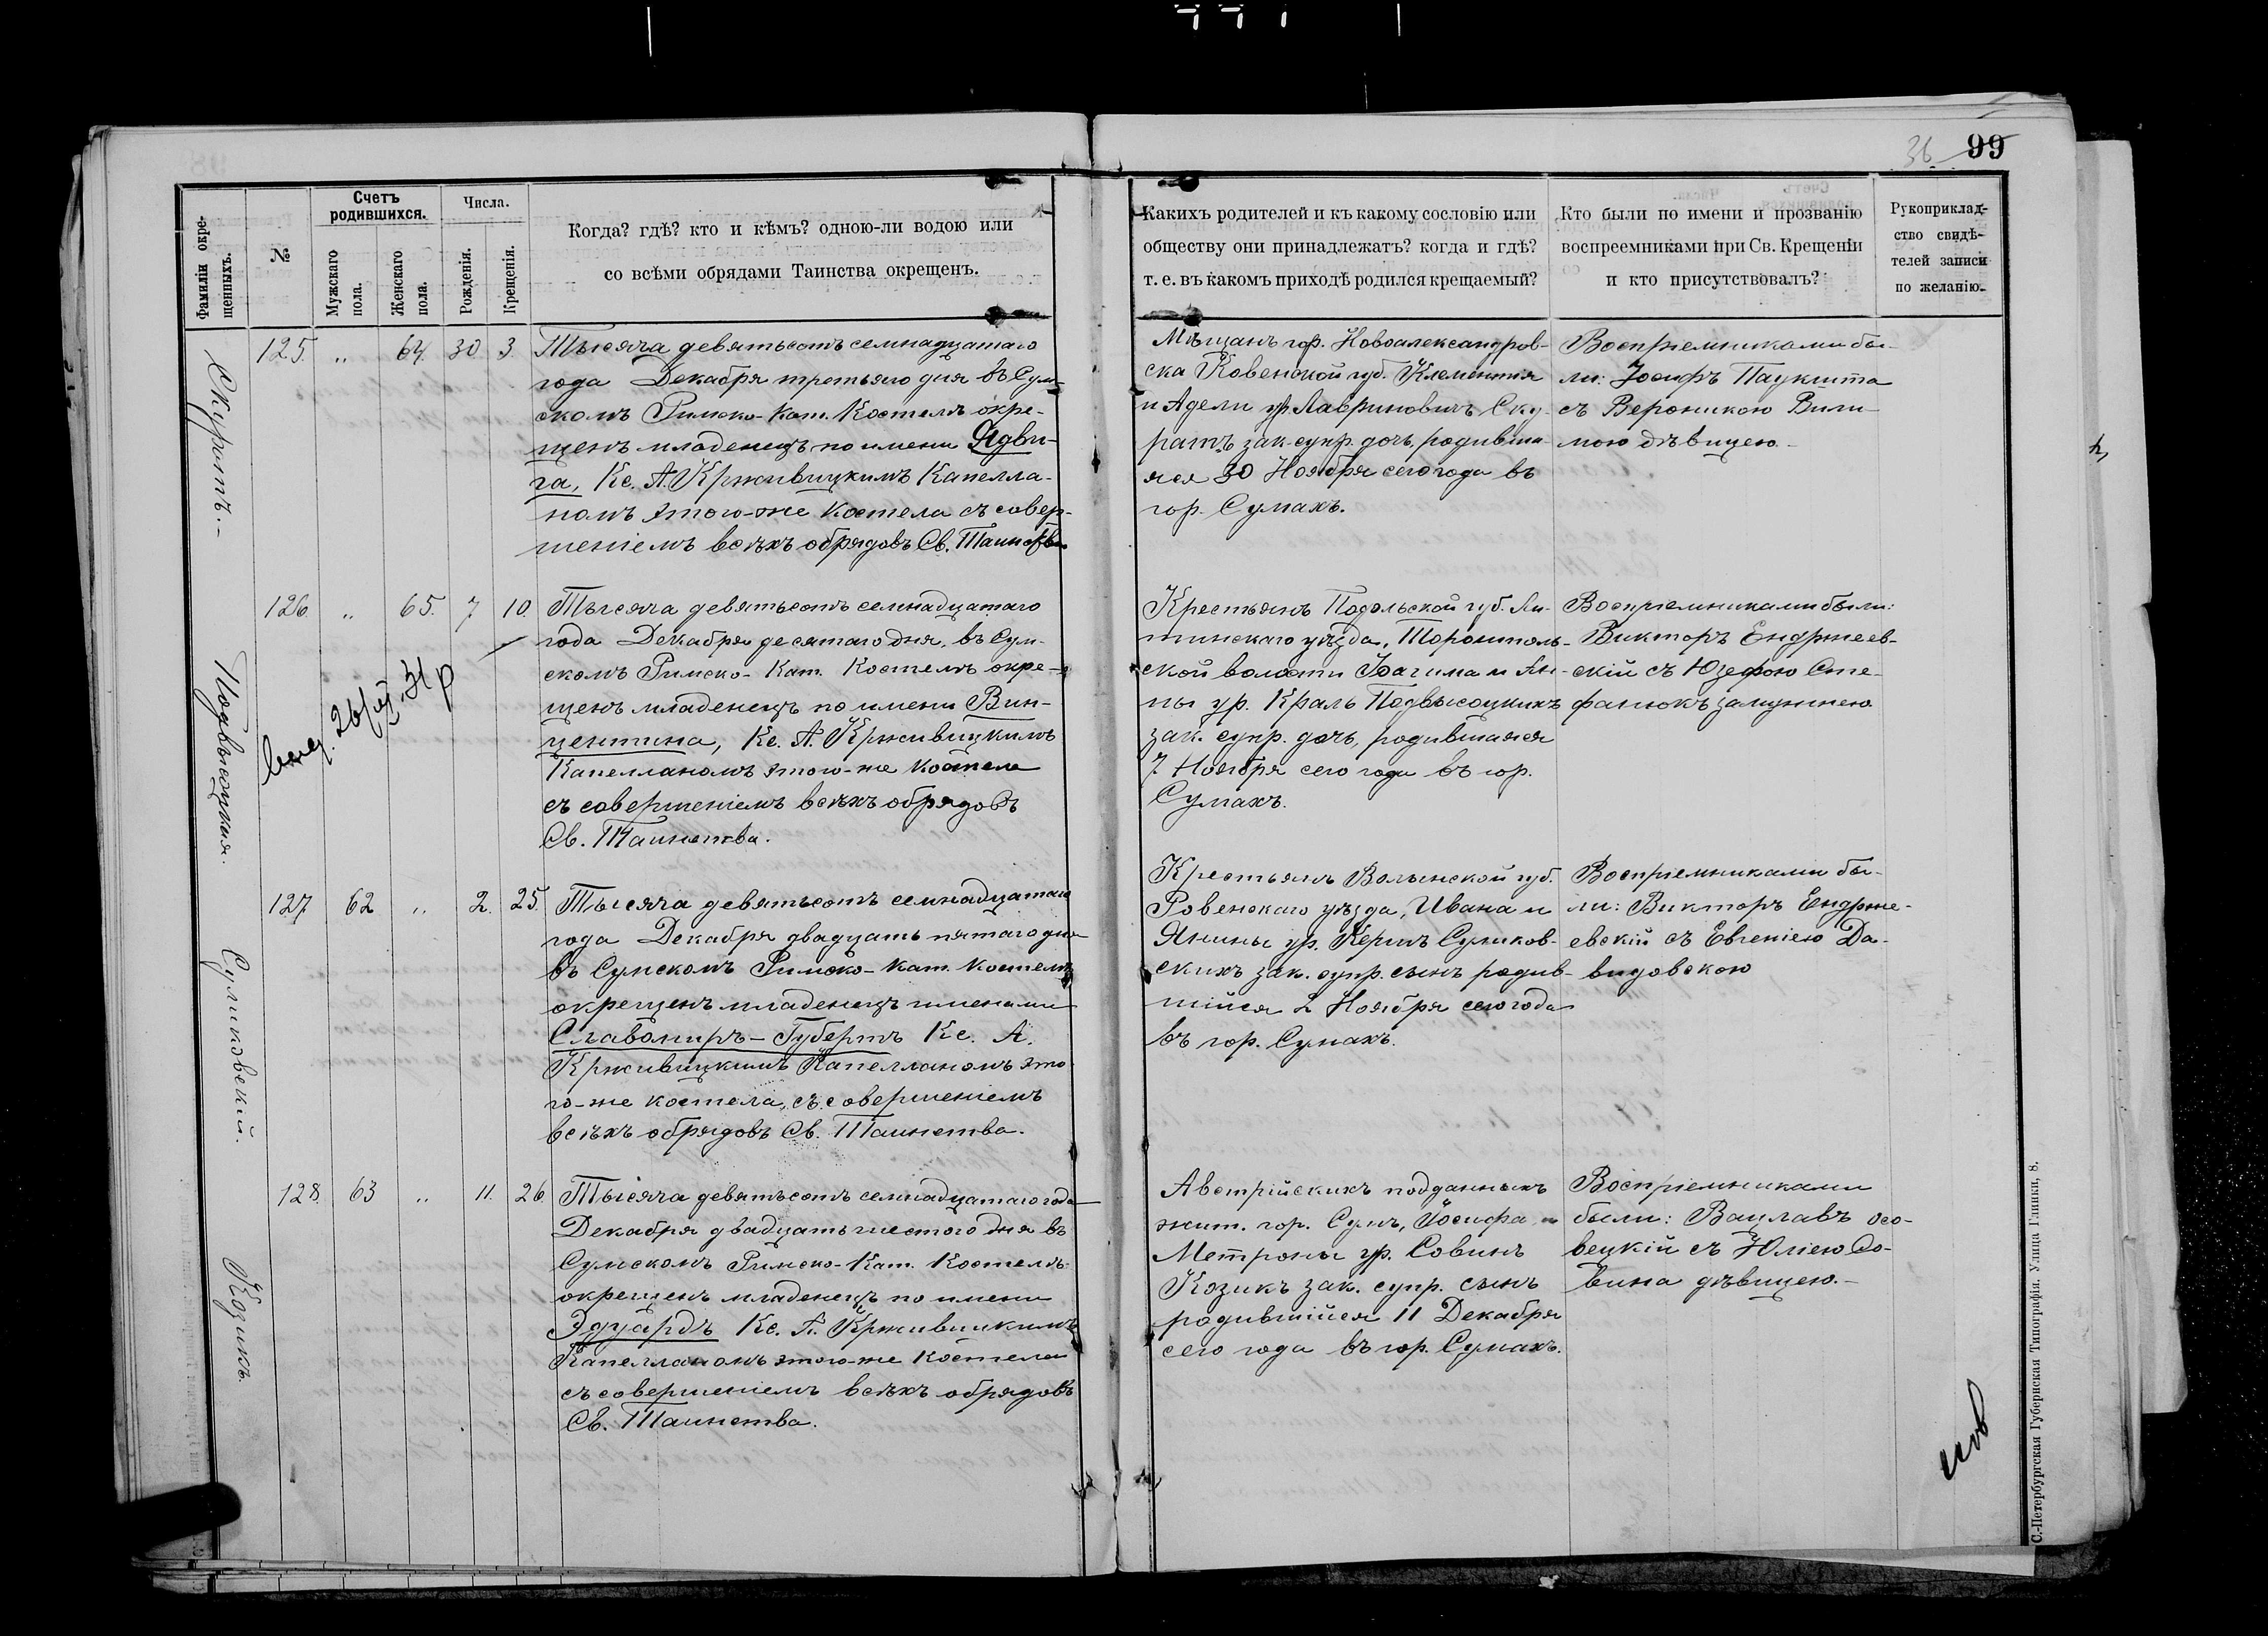 36 99
Фамиліи окре-
щенныхъ.
№
Счетъ
родившихся.
Мужскаго
пола.
Женскаго
пола.
Числа.
Рожденія.
Крещенія.
Когда? гдѣ? кто и кѣмъ? одною-ли водою или
со всѣми обрядами Таинства окрещенъ.
Какихъ родителей и къ какому сословію или
обществу они принадлежатъ? когда и гдѣ?
т. е. въ какомъ приходѣ родился крещаемый?
Кто были по имени и прозванію
воспреемниками при Св. Крещеніи
и кто присутствовалъ?
Рукоприклад-
ство свидѣ-
телей записи
по желанію.
Скуратъ.-
125. „ 64. 30 3.
Тысяча девятьсотъ семнадцатаго
года Декабря третьяго дня въ Сум-
скомъ Римско-Кат. Костелѣ окре-
щенъ младенецъ по имени Ядви-
га, Кс. А. Крживицкимъ Капелла-
номъ этого-же Костела съ совер-
шеніемъ всѣхъ обрядовъ Св. Таинства
Мѣщанъ гор. Новоалександров-
ска Ковенской губ. Клементія
и Адели ур. Лавриновичъ Ску-
ратъ зак. супр. дочь, родивша-
яся 30 Ноября сего года въ
гор. Сумахъ.
Воспріемниками бы-
ли: Іосифъ Паукшта
съ Вероникою Вили-
мою дѣвицею.
Подвысоцкая.
126 „ 65. 7 10.
Тысяча девятьсотъ семнадцатаго
года Декабря десятаго дня, въ Сум-
скомъ Римско-Кат. Костелѣ окре-
щенъ младенецъ по имени Вин-
центина, Кс. А. Крживицкимъ
Капелланомъ этого-же Костела
съ совершеніемъ всѣхъ обрядовъ
Св. Таинства.
Крестьянъ Подольской губ. Ли-
тинскаго уѣзда,
ской волости Іоахима и Ан-
ны ур. Краль Подвысоцкихъ
зак. супр. дочь, родившаяся
7 Ноября сего года въ гор.
Сумахъ.
Воспріемниками были:
Викторъ Ендржеев-
скій съ Юзефою Сте-
фанюкъ замужнею
Суликовскій.
127 62 „ 2. 25.
Тысяча девятьсотъ семнадцатаго
года Декабря двадцать пятаго дня
въ Сумскомъ Римско-Кат. Костелѣ
окрещенъ младенецъ именами
Славомиръ-Губертъ Кс. А.
Крживицкимъ Капелланомъ это-
го-же костела, съ совершеніемъ
всѣхъ обрядовъ Св. Таинства.
Крестьянъ Волынской губ.
Ровенскаго уѣзда, Ивана и
Янины ур. Суликов-
скихъ зак. супр. сынъ родив-
шійся 2 Ноября сего года
въ гор. Сумахъ.
Воспріемниками бы-
ли: Викторъ Ендрже-
евскій съ Евгеніею Да-
видовскою
Козикъ.
128. 63 „ 11. 26.
Тысяча девятьсотъ семнадцатаго года
Декабря двадцать шестого дня въ
Сумскомъ Римско-Кат. Костелѣ
окрещенъ младенецъ по имени
Эдуардъ Кс. А. Крживицкимъ
Капелланомъ этого-же Костела
съ совершеніемъ всѣхъ обрядовъ
Св. Таинства.
Австрійскихъ подданныхъ
жит. гор. Сумъ, Іосифа и
Метроны ур. Совинъ
Козикъ зак. супр. сынъ
родившійся 11 Декабря
сего года въ гор. Сумахъ.
Воспріемниками
были: Вацлавъ Осо-
вецкій съ Юліею Со-
вина дѣвицею.-
С.-Петербургская Губернская Типографія. Улица Глинки, 8.